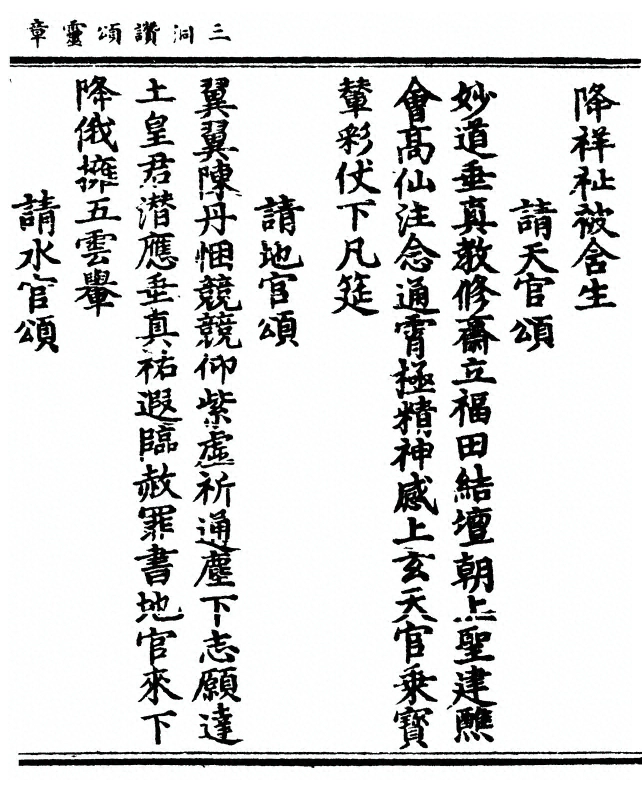 三洞讚頌靈章
降祥祉被含生
請天官頌
妙道垂真教修齋立福田結壇朝上聖建醮
會高仙注念通霄極精神感上玄天官乘寶
輦彩仗下凡筵
請地官頌
翼翼陳丹悃競競仰紫虛祈通塵下志願達
土皇君潛應垂真祐遐臨赦罪書地官來下
降俄擁五雲轝
請水官頌